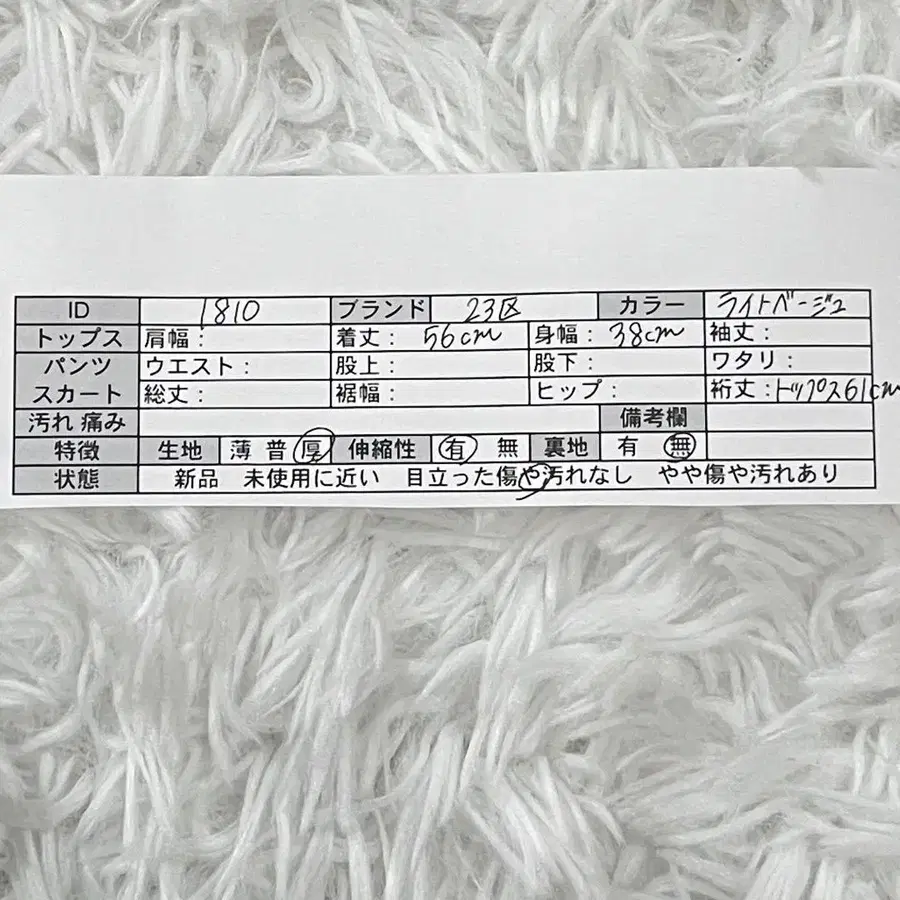 ID 1810 ブランド 23区 カラー ライトベージュ
トップス 肩幅： 着丈： 56cm 身幅： 38cm 袖丈：
パンツ ウエスト： 股上： 股下： ワタリ：
スカート 総丈： 裾幅： ヒップ： 裄丈：トップス61cm
汚れ 痛み 備考欄
特徴 生地 薄 普 厚 伸縮性 有 無 裏地 有 無
状態 新品 未使用に近い 目立った傷や汚れなし やや傷や汚れあり